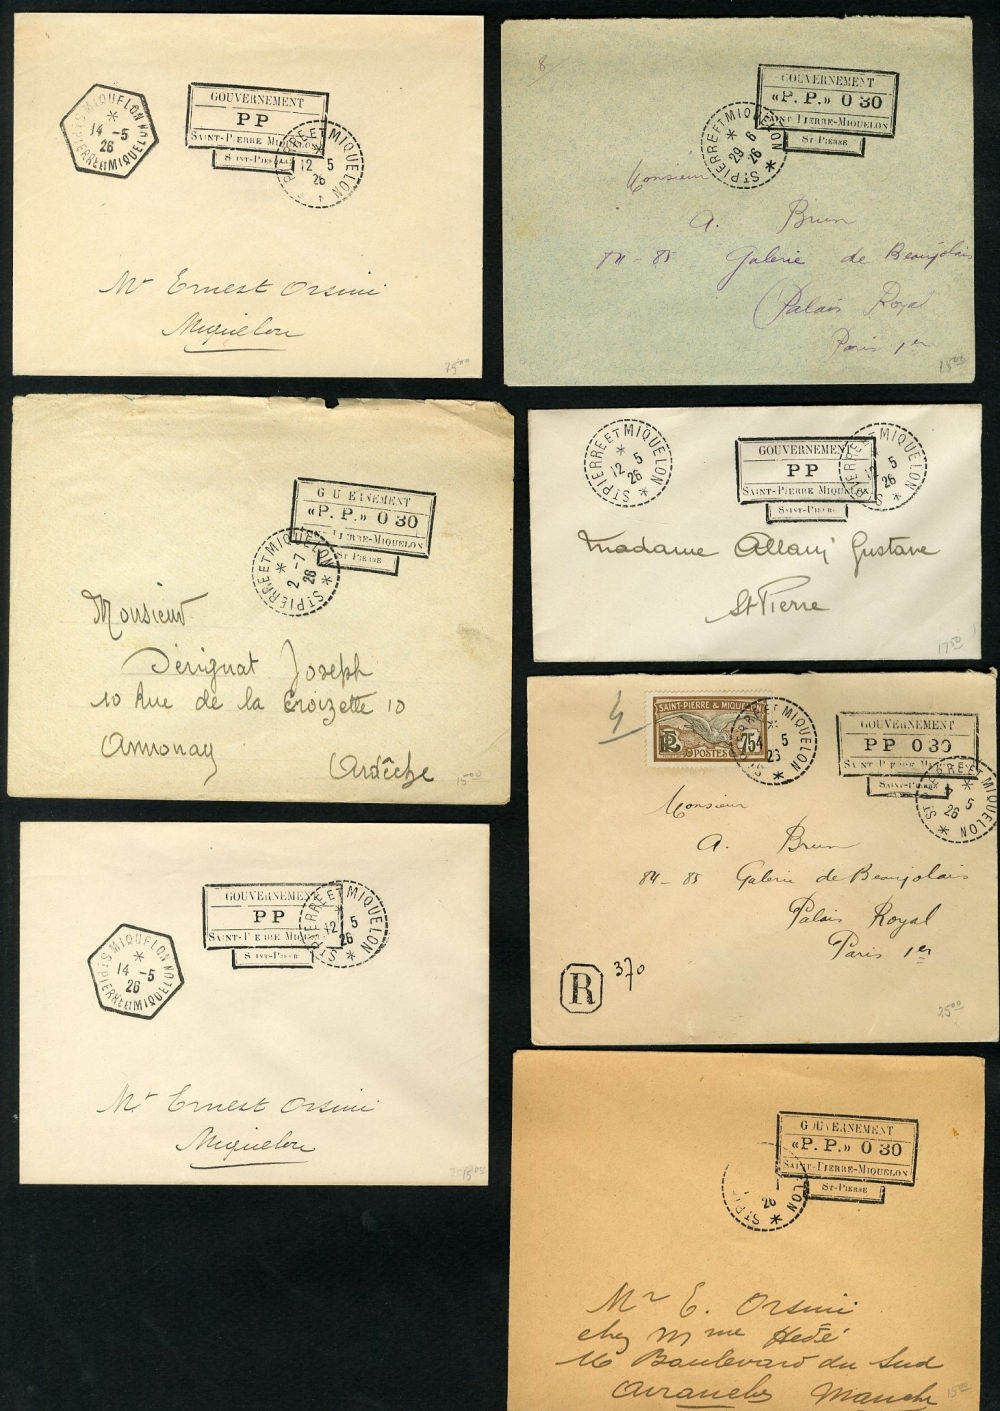 ILES MIQUELON
14 -5
26
ST PIERRE ET MIQUELON
GOUVERNEMENT
PP
SAINT-PIERRE MIQUELON
SAINT-PIERRE
ST PIERRE ET MIQUELON
12 5
26
Mr Ernest Orsini
Miquelon
8
GOUVERNEMENT
«P. P.» 0 30
SAINT-PIERRE-MIQUELON
ST-PIERRE
ST PIERRE ET MIQUELON
29 6
26
Monsieur
A. Brun
84-85 Galerie de Beaujolais
Palais Royal
Paris 1er
G UVERNEMENT
«P. P.» 0 30
PIERRE-MIQUELON
ST PIERRE
ST PIERRE ET MIQUELON
2 -7
26
Monsieur
Dérignat Joseph
10 Rue de la Croizette 10
Annonay
Ardèche
15 00
ST PIERRE ET MIQUELON
12 5
26
GOUVERNEMENT
PP
SAINT-PIERRE MIQUELON
SAINT-PIERRE
ST PIERRE ET MIQUELON
12 5
26
Madame Allain Gustave
St Pierre
17 50
SAINT-PIERRE & MIQUELON
75
POSTES
ST PIERRE ET MIQUELON
4 5
26
GOUVERNEMENT
PP 0 30
SAINT-PIERRE MIQUELON
SAINT-PIERRE
ST PIERRE ET MIQUELON
4 5
26
Monsieur
A. Brun
84-85 Galerie de Beaujolais
Palais Royal
Paris 1er
R 370
25 00
MIQUELON
14 -5
26
ST PIERRE ET MIQUELON
GOUVERNEMENT
PP
SAINT-PIERRE MIQUELON
SAINT-PIERRE
ST PIERRE ET MIQUELON
12 5
26
Mr Ernest Orsini
Miquelon
GOUVERNEMENT
«P. P.» 0 30
SAINT-PIERRE-MIQUELON
ST-PIERRE
26
Mr E. Orsini
chez Mme Hedé
16 Boulevard du Sud
Avranches Manche
15 00